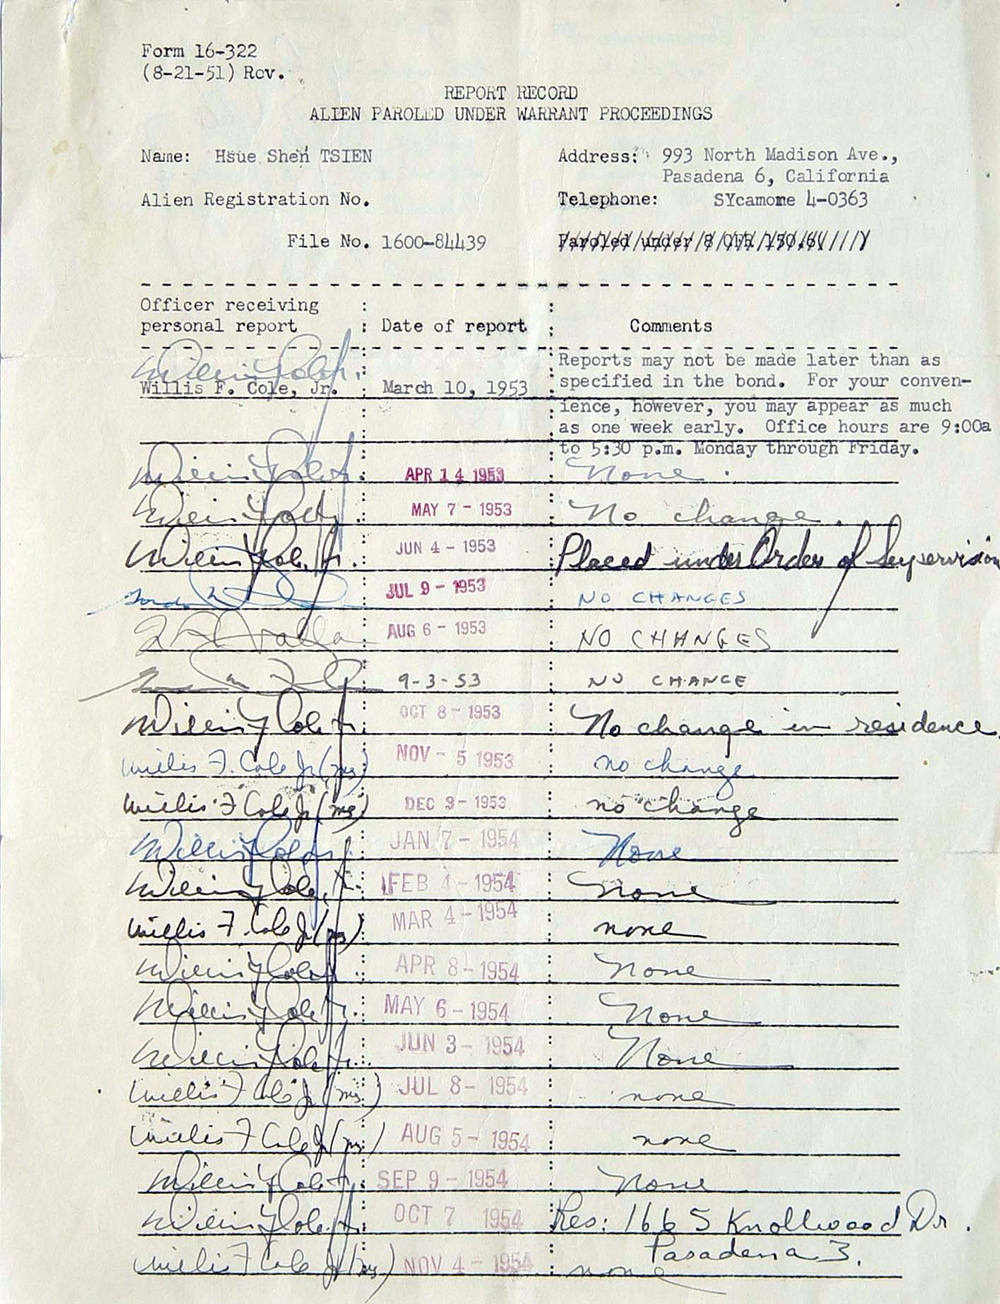 Form 16-322
(8-21-51) Rev.
REPORT RECORD
ALIEN PAROLED UNDER WARRANT PROCEEDINGS
Name: Hsue Shen TSIEN
Address: 993 North Madison Ave.,
Pasadena 6, California
Alien Registration No.
Telephone: SYcamore 4-0363
File No. 1600-84439
Paroled under 8 CFR 150.6
Officer receiving personal report : Date of report : Comments
Willis F. Cole, Jr. March 10, 1953 Reports may not be made later than as
specified in the bond. For your conven-
ience, however, you may appear as much
as one week early. Office hours are 9:00a
to 5:30 p.m. Monday through Friday.
Willis F Cole Jr. APR 14 1953 None.
Willis F Cole Jr. MAY 7 - 1953 No change.
Willis F Cole Jr. JUN 4 - 1953 Placed under Order of Supervision
JUL 9 - 1953 NO CHANGES
AUG 6 - 1953 NO CHANGES
9-3-53 NO CHANGE
Willis F Cole Jr. OCT 8 - 1953 No change in residence.
Willis F. Cole Jr (mg) NOV - 5 1953 no change
Willis F Cole Jr (mg) DEC 3 - 1953 no change
Willis F Cole Jr. JAN 7 - 1954 None
Willis F Cole Jr. FEB 4 - 1954 None
Willis F. Cole Jr (mg) MAR 4 - 1954 none
Willis F Cole Jr. APR 8 - 1954 None
Willis F Cole Jr. MAY 6 - 1954 None
Willis F Cole Jr. JUN 3 - 1954 None
Willis F Cole Jr (mg) JUL 8 - 1954 none
Willis F Cole Jr (mg) AUG 5 - 1954 none
Willis F Cole Jr. SEP 9 - 1954 None
Willis F Cole Jr. OCT 7 1954 Res: 1665 Knollwood Dr.
Pasadena 3.
Willis F Cole Jr (mg) NOV 4 - 1954 none